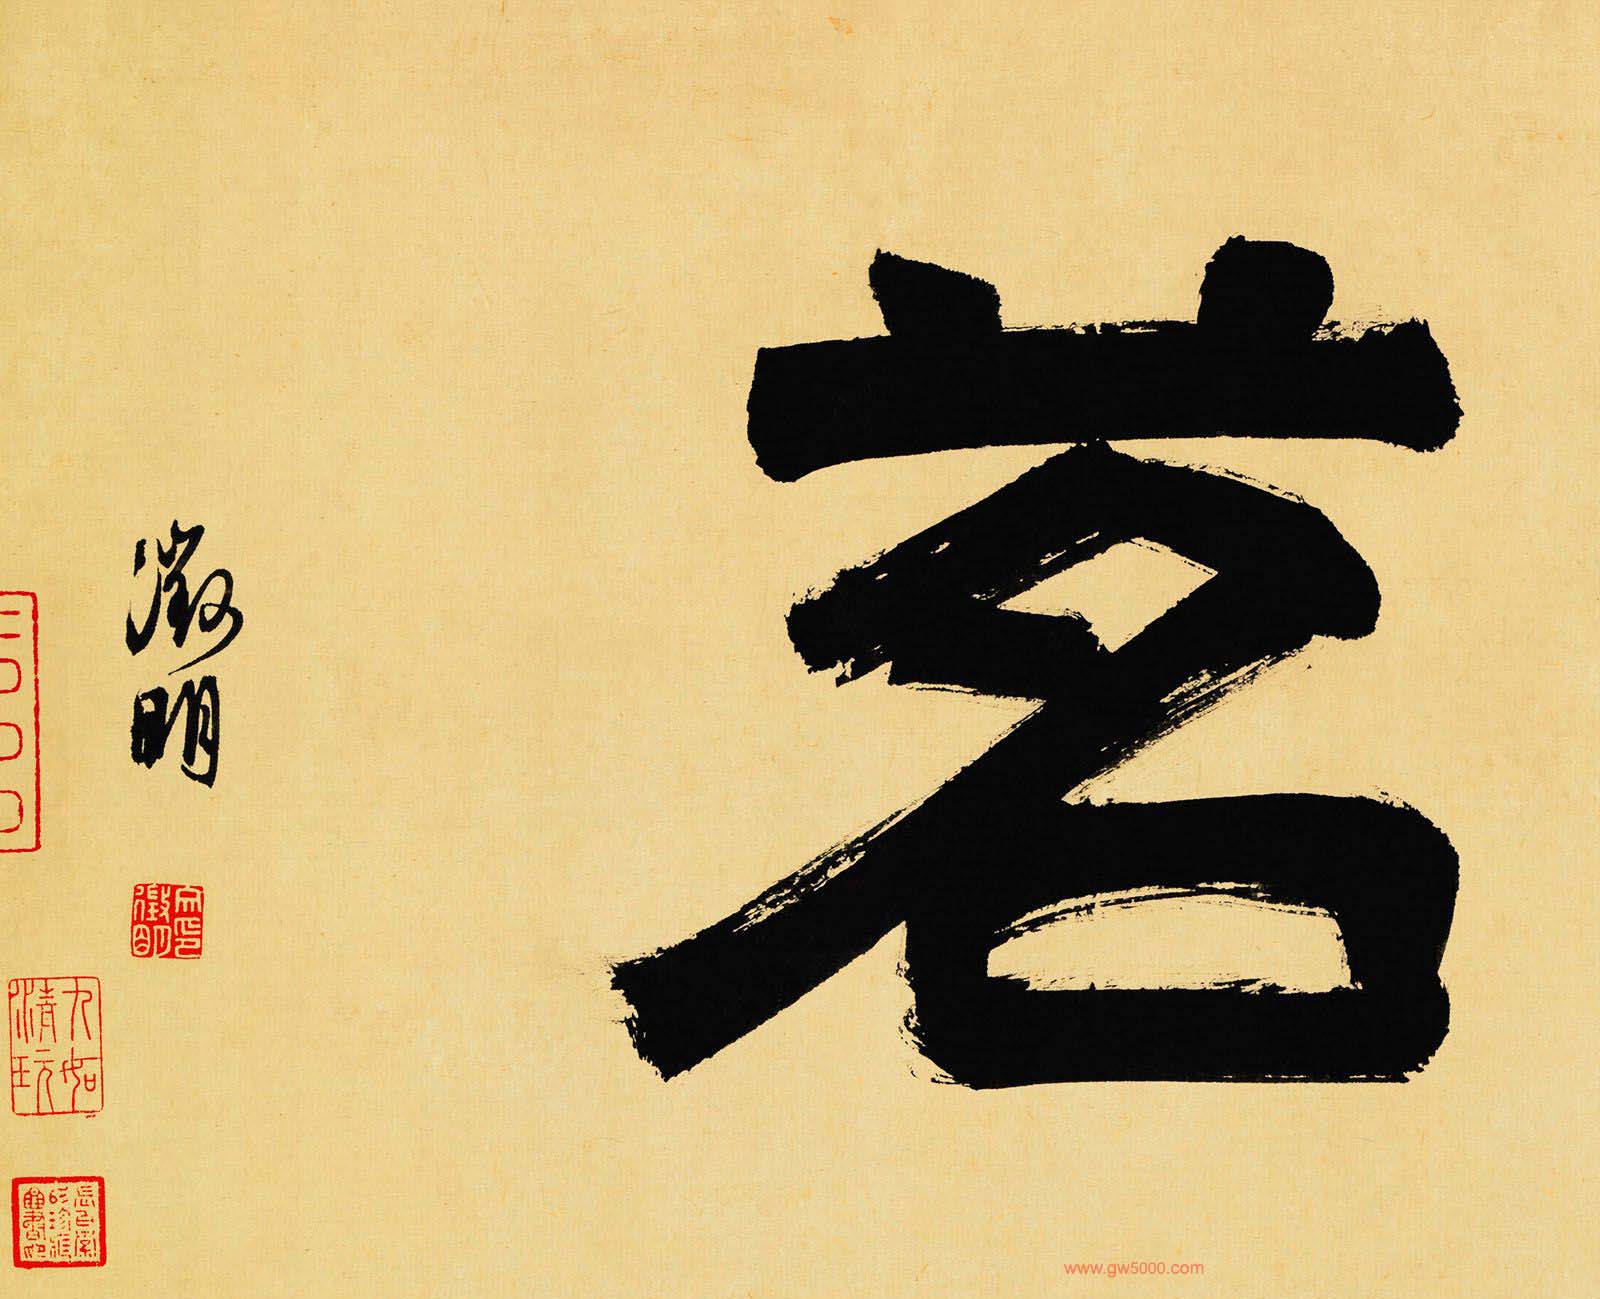 茗
徵明
文徵明印
九如清玩
www.gw5000.com